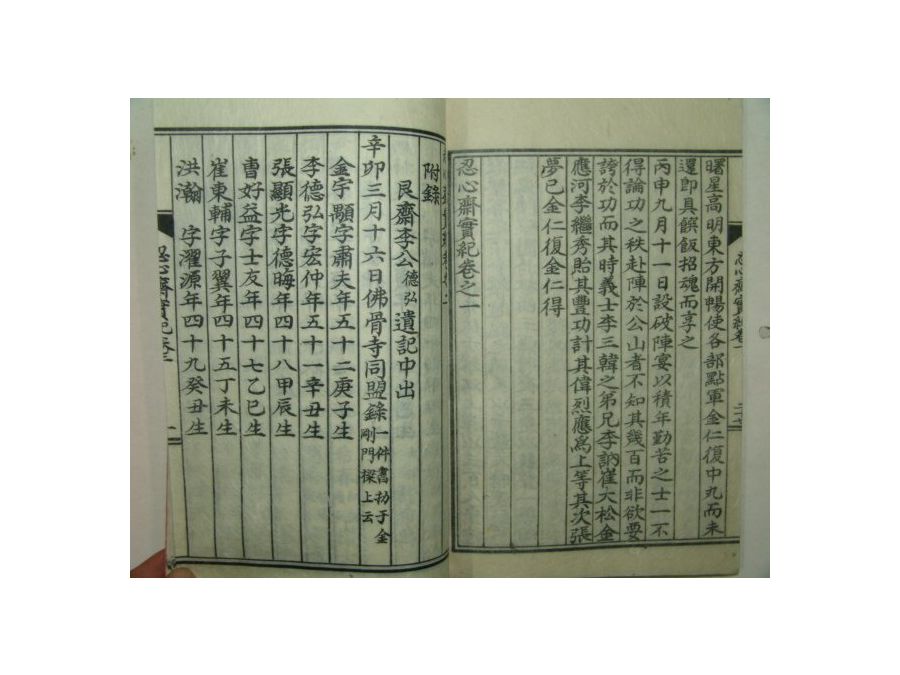 曙星高明東方開暢使各部點軍金仁復中丸而未
還即具饌飯招魂而享之
丙申九月十一日設破陣宴以積年勤苦之士一不
得論功之秩赴陣於公山者不知其幾百而非欲要
誇於功而其時義士李三韓之弟兄李訥崔大松金
應河李繼秀貽其豐功計其偉烈應爲上等其次張
夢己金仁復金仁得
忍心齋實紀卷之一
附錄
艮齋李公德弘遺記中出
辛卯三月十六日佛骨寺同盟錄一件書於子金剛門樑上云
金宇顒字肅夫年五十二庚子生
李德弘字宏仲年五十一辛丑生
張顯光字德晦年四十八甲辰生
曺好益字士友年四十七乙巳生
崔東輔字子翼年四十五丁未生
洪瀚 字濯源年四十九癸丑生